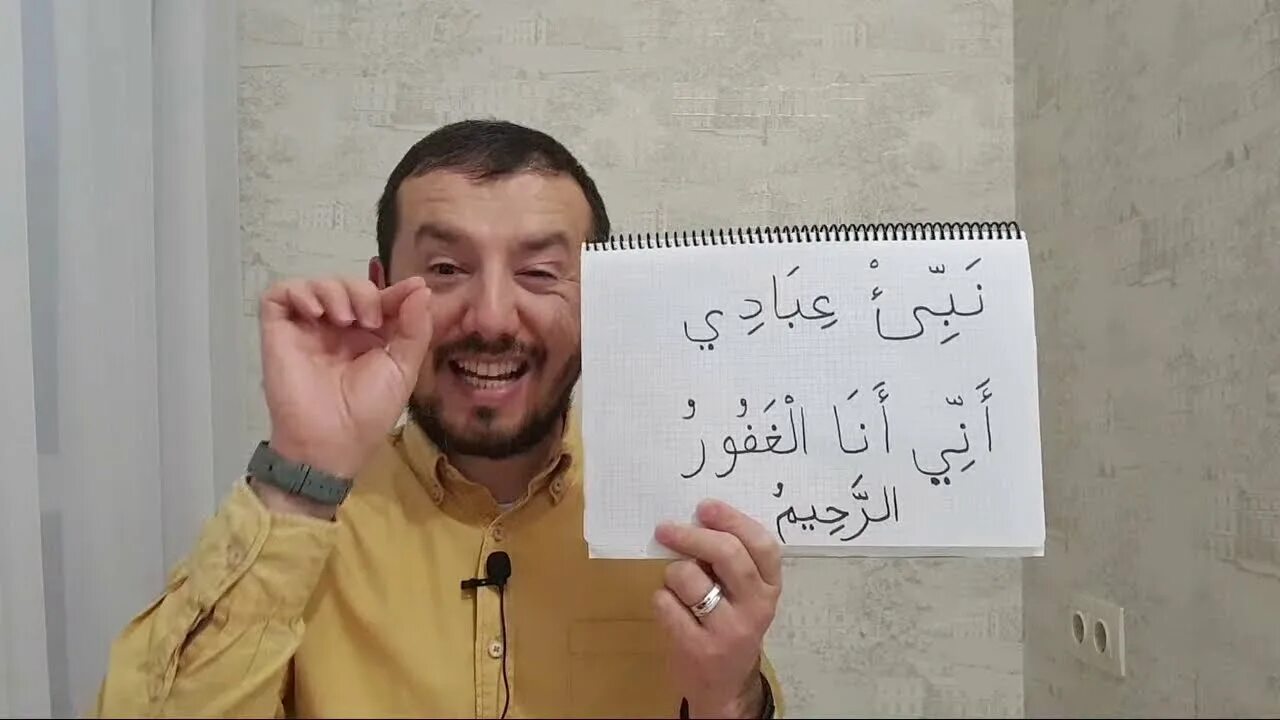 نَبِّئْ عِبَادِي
أَنِّي أَنَا الْغَفُورُ
الرَّحِيمُ